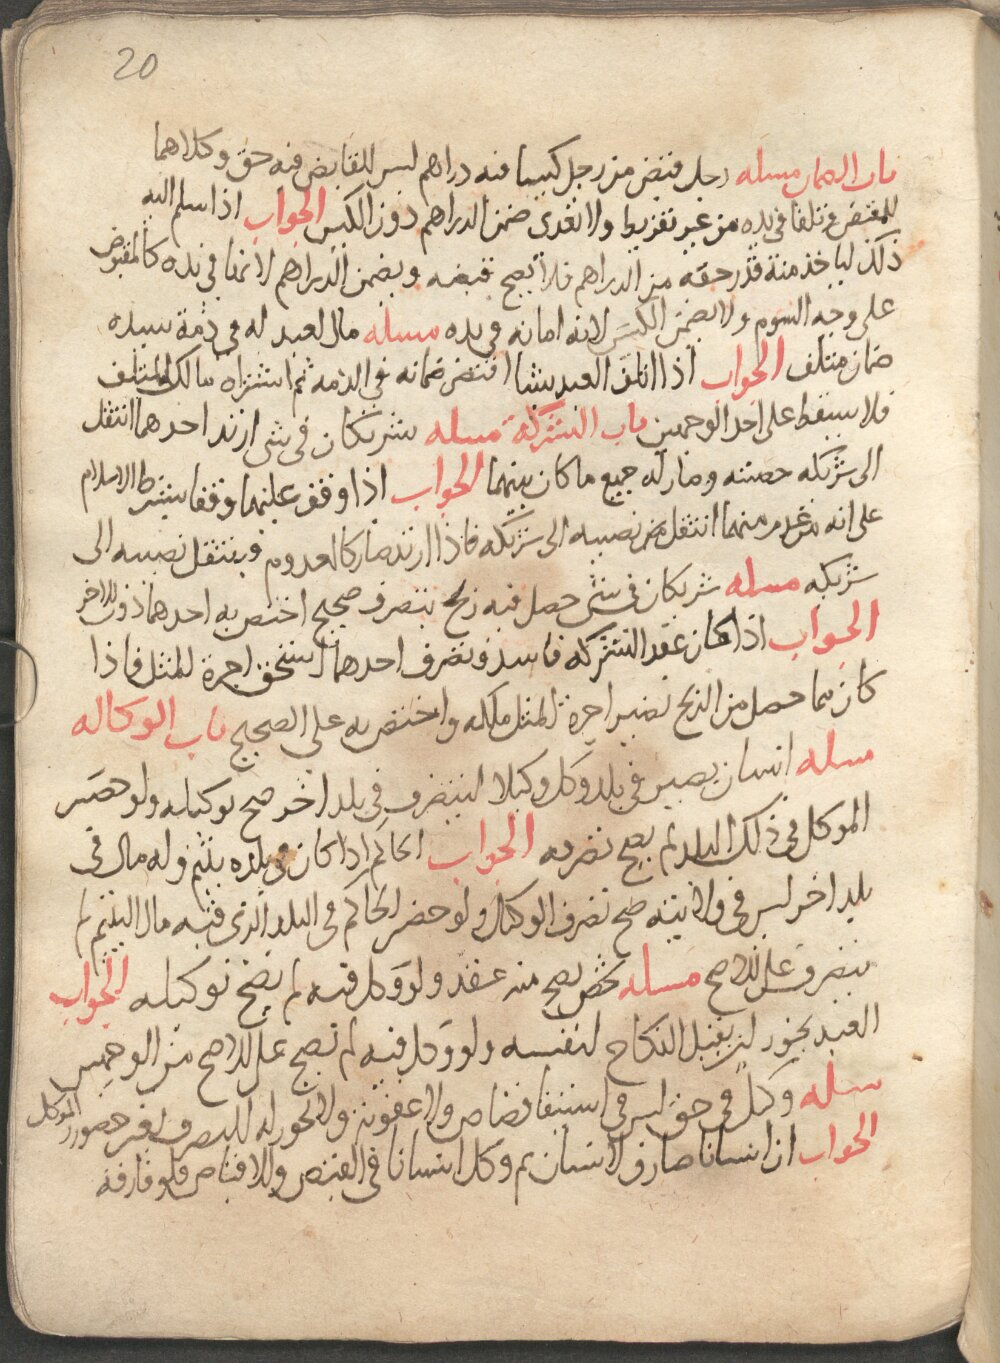 20
باب الضمان مسله رجل قبض من رجل كيسا فيه دراهم ليس للقابض فيه حق وكلاهما
للمقبض فتلفا في يده من غير تفريط ولا تعدى ضمن الدراهم دون الكيس الجواب اذا سلم اليه
ذلك لياخذ منه قدر حقه من الدراهم فلا يصح قبضه ويضمن الدراهم لانها في يده كالمقبوض
على وجه السوم ولا يضمن الكيس لانه امانه في يده مسله مال لعبد له في ذمة سيده
ضمان متلف الجواب اذا اتلف العبد شيا اقتضى ضمانه في الذمه ثم اشتراه مالك المتلف
فلا يسقط على احد الوجهين باب الشركة مسله شريكان في شى ارتد احدهما انتقل
الى شريكه حصته وصار له جميع ما كان بينهما الجواب اذا وقف عليهما وقفا بشرط الاسلام
على انه من عدم منهما انتقل نصيبه الى شريكه فاذا ارتد صار كالمعدوم وينتقل نصيبه الى
شريكه مسله شريكان في شى حصل فيه ربح بتصرف صحيح اختص به احدهما دون الاخر
الجواب اذا كان عقد الشركه فاسد وتصرف احدهما استحق اجرة المثل فاذا
كان ما حصل من الربح نصير اجرة المثل ملكه واختص به على الصحيح باب الوكاله
مسله انسان بصير في بلد وكل وكيلا ليتصرف في بلد اخر صح توكيله ولو حضر
الموكل في ذلك البلد لم يصح تصرفه الجواب الحاكم اذا كان في بلده يتيم وله مال في
بلد اخر ليس في ولايته صح تصرف الوكيل ولو حضر الحاكم في البلد الذى فيه مال اليتيم لم
يتصرف على الاصح مسله شخص يصح منه عقد ولو وكل فيه لم يصح توكيله الجواب
العبد يجوز ان يقبل النكاح لنفسه ولو وكل فيه لم تصح على الاصح من الوجهين
مسله وكيل في حق ليس في استيفا قصاص ولا عقوبة ولا يجوز له التصرف بغير حضور الموكل
الجواب ان انسانا صارف لانسان ثم وكل انسانا في القبض والاقباض فلو فارقه